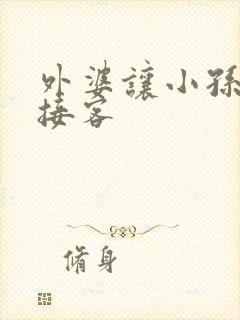 外婆讓小孫
接客
脩身